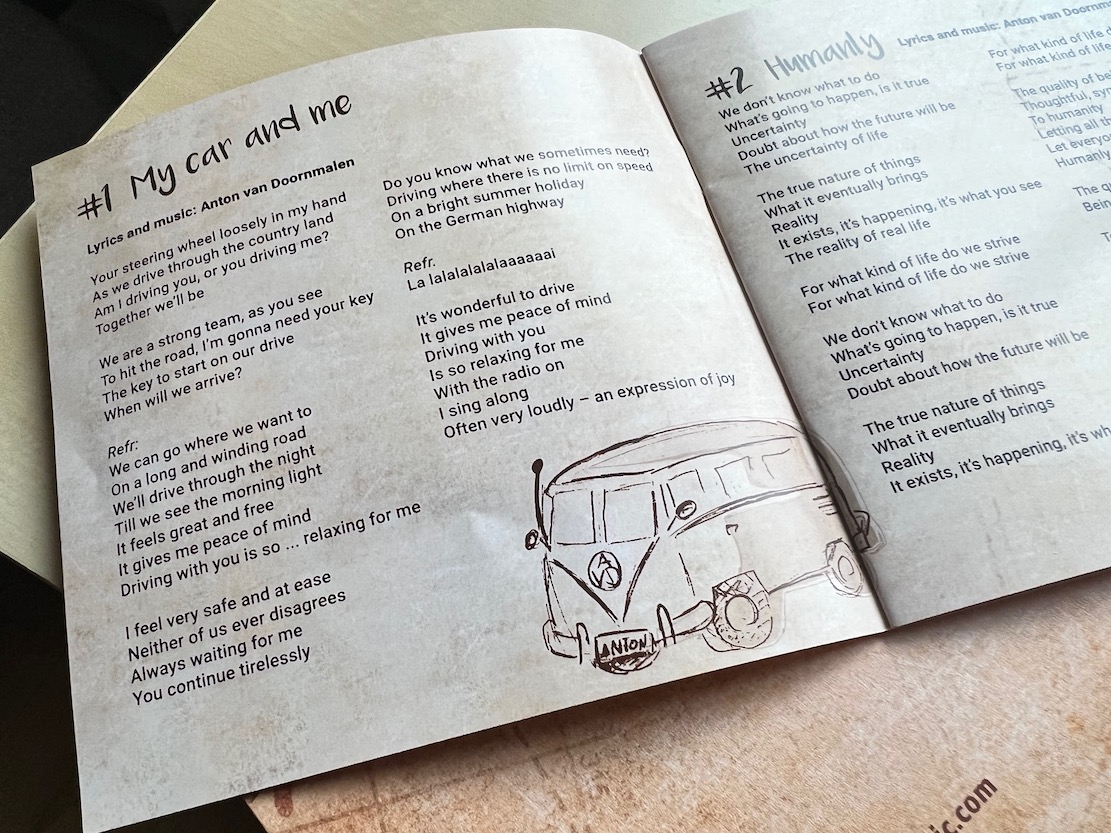 #1 My car and me
Lyrics and music: Anton van Doornmalen
Your steering wheel loosely in my hand
As we drive through the country land
Am I driving you, or you driving me?
Together we'll be
We are a strong team, as you see
To hit the road, I'm gonna need your key
The key to start on our drive
When will we arrive?
Refr:
We can go where we want to
On a long and winding road
We'll drive through the night
Till we see the morning light
It feels great and free
It gives me peace of mind
Driving with you is so ... relaxing for me
I feel very safe and at ease
Neither of us ever disagrees
Always waiting for me
You continue tirelessly
Do you know what we sometimes need?
Driving where there is no limit on speed
On a bright summer holiday
On the German highway
Refr.
La lalalalalalaaaaaai
It's wonderful to drive
It gives me peace of mind
Driving with you
Is so relaxing for me
With the radio on
I sing along
Often very loudly – an expression of joy
ANTON
#2 Humanly
Lyrics and music: Anton van
We don't know what to do
What's going to happen, is it true
Uncertainty
Doubt about how the future will be
The uncertainty of life
The true nature of things
What it eventually brings
Reality
It exists, it's happening, it's what you see
The reality of real life
For what kind of life do we strive
For what kind of life do we strive
We don't know what to do
What's going to happen, is it true
Uncertainty
Doubt about how the future will be
The true nature of things
What it eventually brings
Reality
It exists, it's happening, it's
For what kind of life
For what kind of life
The quality of
Thoughtful,
To humanity
Letting all
Let
Humanly
The
.com